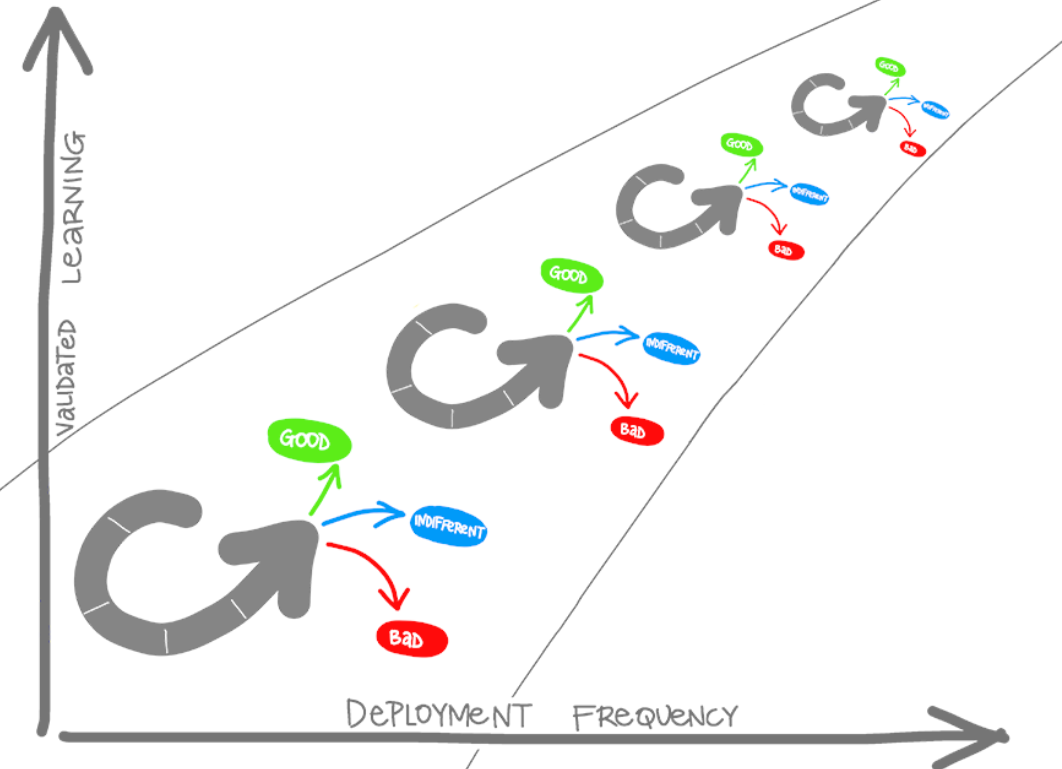 VALIDATED LEARNING
GOOD
INDIFFERENT
BAD
GOOD
INDIFFERENT
BAD
GOOD
INDIFFERENT
BAD
GOOD
INDIFFERENT
BAD
DEPLOYMENT FREQUENCY